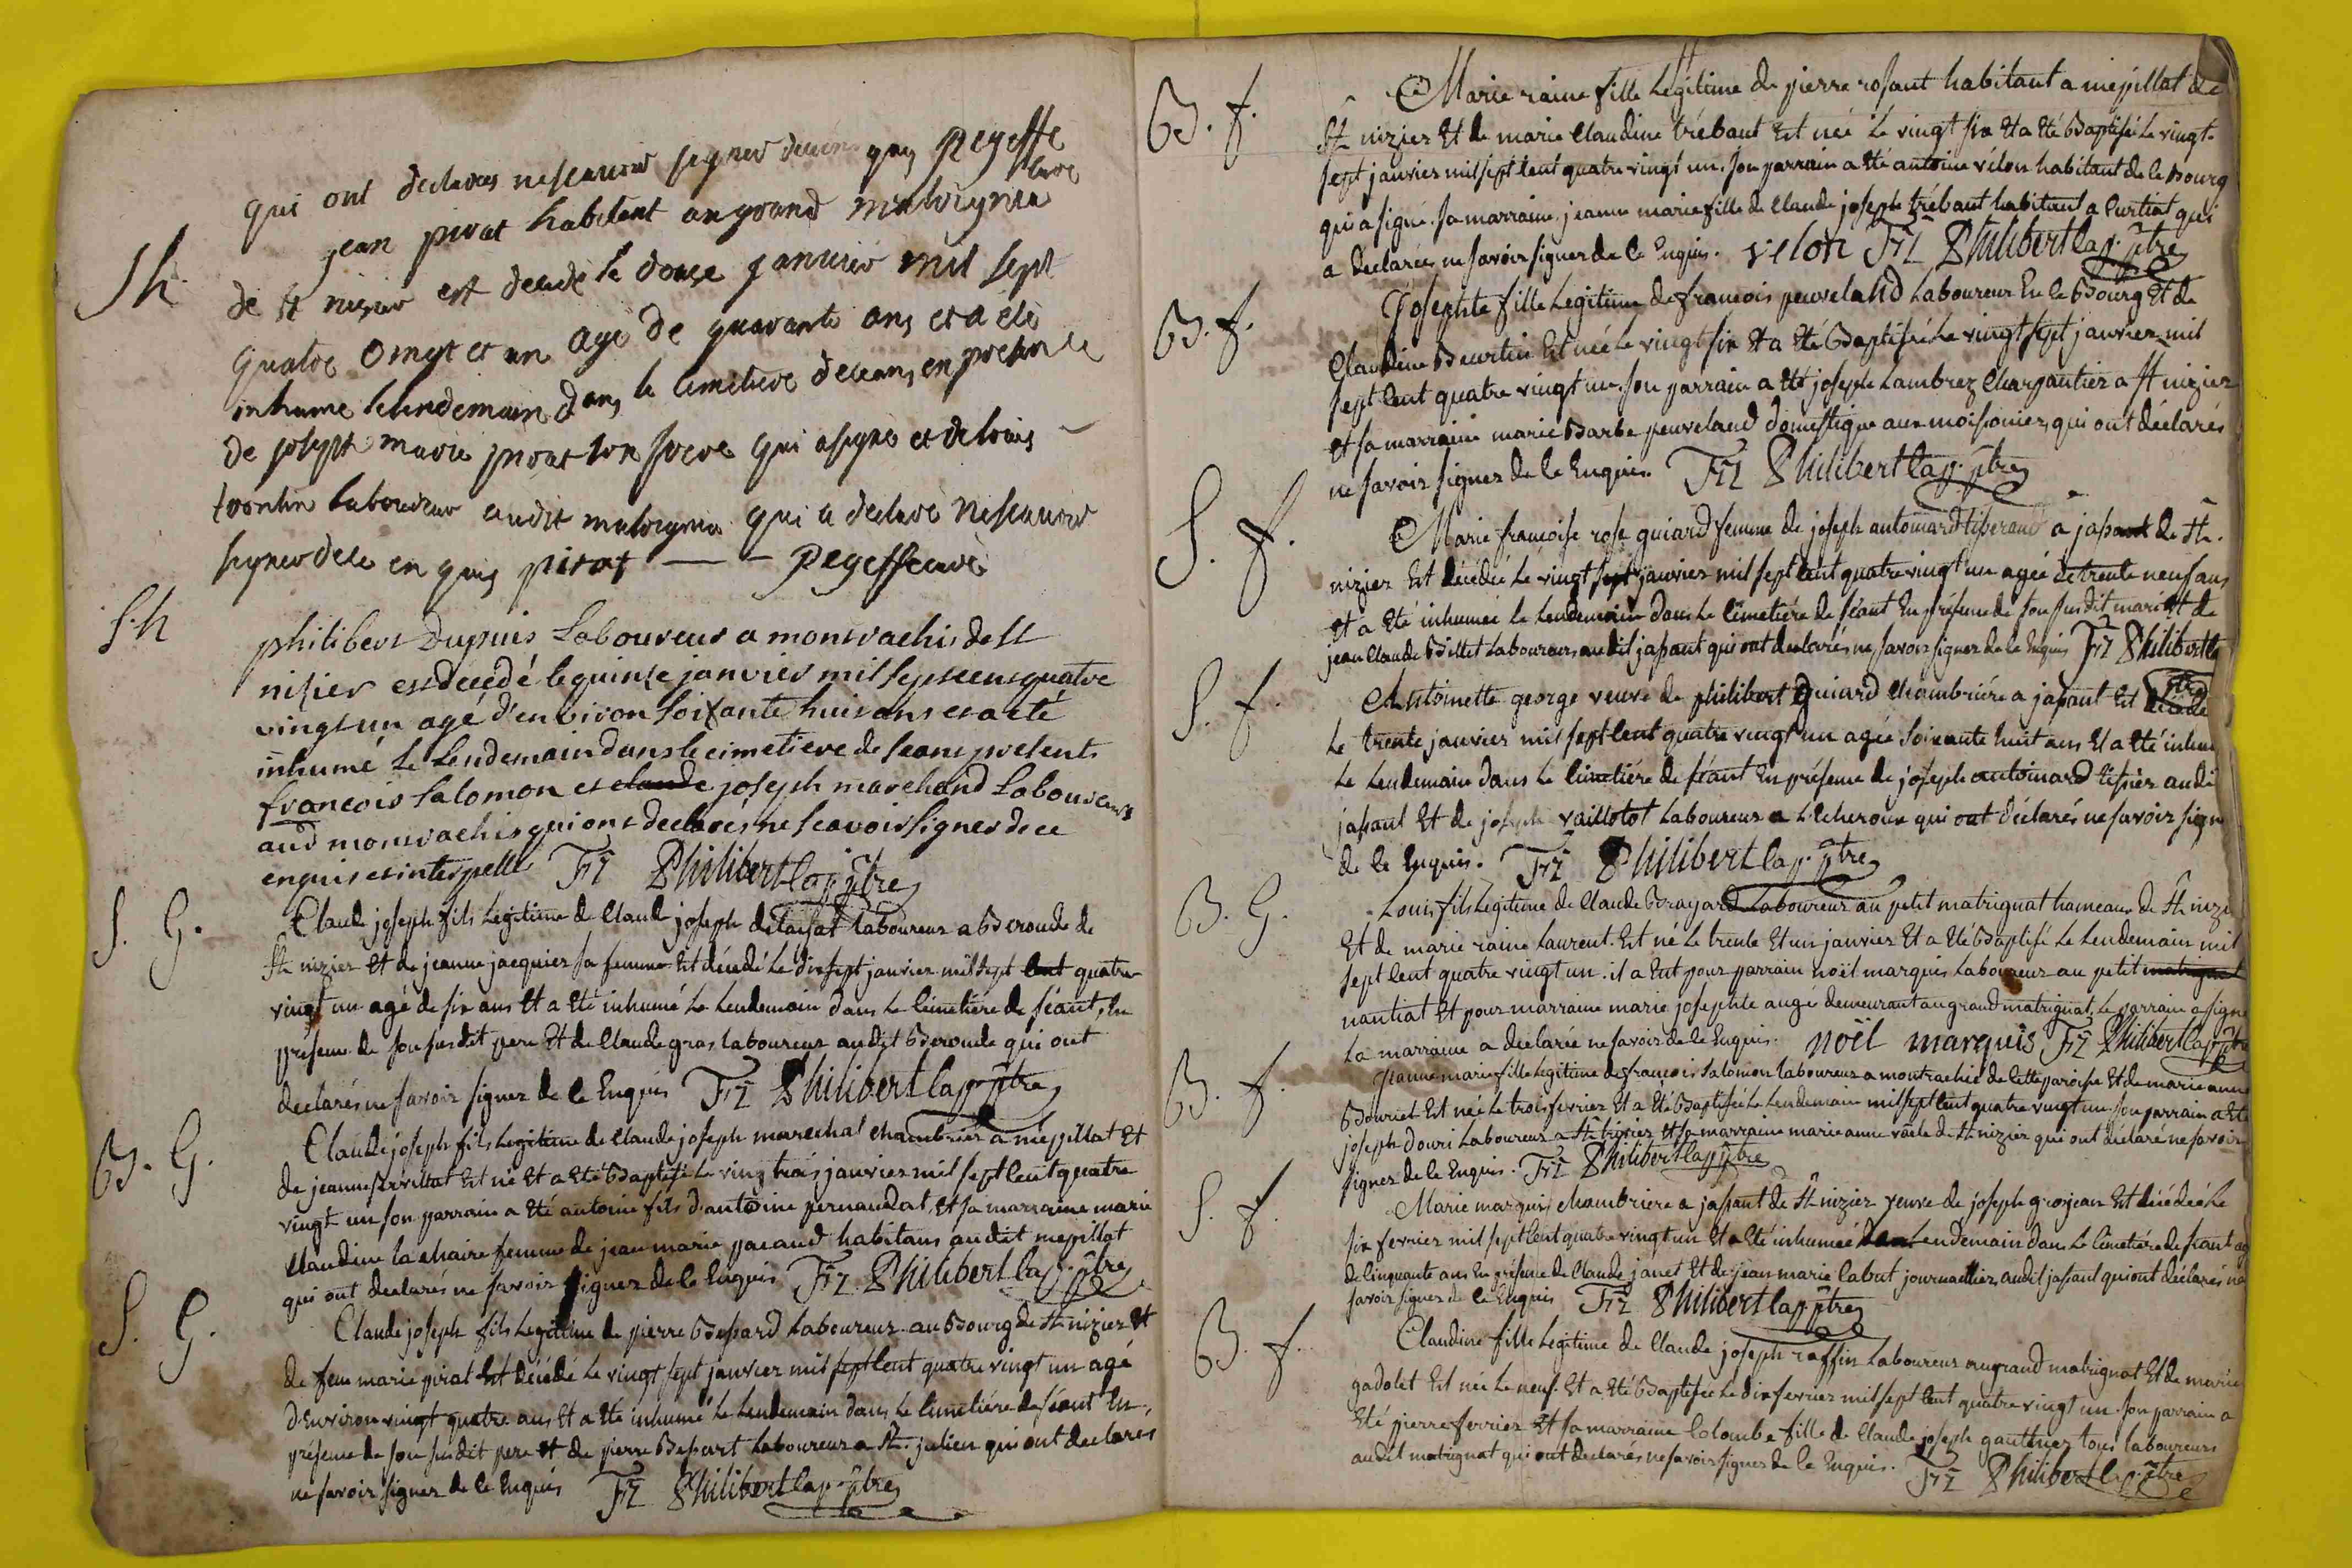 qui ont declarés nescavoir signer dece en quis pegeffe
cure
Sh. jean pirat habitant au grand matrignia
de st nisier est decedé le douse janvier mil sept
quatre vingt et un agé de quarante ans et a été
inhumé le lendemain dans le cimetiere deceans en presence
de joseph marie pirat son frere qui a signé et de louis
laboureur audit matrignia qui a declaré nescavoir
signer dece en quis pirat — — pegeffe curé
S.h philibert Dupuis Laboureur a montrachis de st
nisier est décédé le quinze janvier mil sept cens quatre
vingt un agé d'environ soixante huit ans et a eté
inhumé le Lendemain dans le cimetiere de seans presents
francois Salomon et claude joseph marchand Laboureurs
aud montrachis qui ont declarés ne scavoir signer de ce
enquis et interpellés Frz Philibert lap. ptre
S. G. Claude joseph fils Legitime de Claude joseph delaisat laboureur a Beroude de
St nizier Et de jeanne jacquier sa femme Est décedé Le dixsept janvier mil sept cent quatre
vingt un agé de six ans Et a Eté inhumé Le Lendemain dans Le Cimetiere de séant, En
présence de son susdit pere Et de Claude gras Laboureur audit Beroude qui ont
declarés ne savoir signer de Ce Enquis Frz Philibert lap. ptre
B. G. Claude joseph fils Legitime de Claude joseph marechal chambrier a mépillat Et
de jeanne servillat Est né Et a Eté Baptisé Le vingt trois janvier mil sept Cent quatre
vingt un son parrain a Eté antoine fils d'antoine pernaudat, Et sa marraine marie
Claudine la chaire femme de jean marie pacaud habitans audit mepillat
qui ont declarés ne savoir signer de Ce Enquis Frz Philibert lap. ptre
S. G. Claude joseph fils Legitime de pierre Bessard Laboureur au Bourg de St nizier Et
de feue marie pirat Est décédé Le vingt sept janvier mil sept Cent quatre vingt un agé
d'Environ vingt quatre ans Et a Eté inhumé Le Lendemain dans Le Cimetiére de séant En
présence de son susdit pere Et de pierre Bessart Laboureur a St julien qui ont declarés
ne savoir signer de Ce Enquis Frz Philibert lap. ptre
B. f. Marie raine fille Legitime de pierre rosant habitant a mépillat de
St nizier Et de marie Claudine trébant Est née Le vingt six Et a Eté Baptisée Le vingt
sept janvier mil sept Cent quatre vingt un. son parrain a Eté antoine vélon habitant de Ce Bourg
qui a signé. sa marraine, jeanne marie fille de Claude joseph trébant habitant a Curtiat qui
a déclarée ne savoir signer de Ce Enquis. velon Frz Philibert lap. ptre
B. f. Josephte fille Legitime de francois peuveland Laboureur En Ce Bourg Et de
Claudine Beurtin Est née Le vingt six Et a Eté Baptisée Le vingt sept janvier mil
sept Cent quatre vingt un. son parrain a Eté joseph Lambrez Charpantier a St nizier
Et sa marraine marie Barbe peuveland domestique aux moissonier, qui ont déclarés
ne savoir signer de Ce Enquis. Frz Philibert lap. ptre
S. f. Marie francoise rose guiard femme de joseph antoinard tiserand a jasant de St
nizier Est décedée Le vingt sept janvier mil sept Cent quatre vingt un agée de trente neuf ans
Et a Eté inhumée Le Lendemain dans Le Cimetiére de séant En présence de son susdit mari Et de
jean Claude Billet Laboureur audit jasant qui ont declarés ne savoir signer de Ce Enquis Frz Philibert la
ptre
S. f. Antoinette george veuve de philibert guiard Chambriére a jasant Est décédé
Le trente janvier mil sept Cent quatre vingt un agée soixante huit ans Et a Eté inhu
Le Lendemain dans Le Cimetiére de séant En présence de joseph antoinard tisier audi
jasant Et de joseph vaillotot Laboureur a Lécheroux qui ont déclarés ne savoir sign
de Ce Enquis. Frz Philibert lap. ptre
B. G. Louis fils Legitime de Claude Brayard Laboureur au petit matrignat hameau de St nizi
Et de marie raine Laurent. Est né Le trente Et un janvier Et a Eté Baptisé Le Lendemain mil
sept Cent quatre vingt un. il a Eut pour parrain noël marquis Laboureur au petit matrignat
nantiat Et pour marraine marie josephte augé demeurant au grand matrignat, Le parrain a signé
La marraine a declarée ne savoir de Ce Enquis. noël marquis Frz Philibert lap ptre
B. f. Jeanne marie fille Legitime de francois Salomon Laboureur a montrachis de Cette paroisse Et de marie anne
Bourcet Est née Le trois fevrier Et a Eté Baptisée Le Lendemain mil sept Cent quatre vingt un. son parrain a Eté
joseph douri Laboureur a St trivier Et sa marraine marie anne de St nizier qui ont déclaré ne savoir
signer de Ce Enquis. Frz Philibert lap ptre
S. f. Marie marquis chambriere a jasant de St nizier veuve de joseph grosjean Est décédée Le
six fevrier mil sept Cent quatre vingt un Et a Eté inhumée Lendemain dans Le Cimetiére de séant ag
de Cinquante ans En présence de Claude janet Et de jean marie Cabut journaillier audit jasant qui ont déclarés ne
savoir signer de Ce Enquis Frz Philibert lap ptre
B. f. Claudine fille Legitime de Claude joseph raffin Laboureur au grand matrignat Et de marie
gadolet Est née Le neuf Et a Eté Baptisée Le dix fevrier mil sept Cent quatre vingt un. son parrain a
Eté pierre ferrier Et sa marraine Colombe fille de Claude joseph gauthier tous laboureurs
audit matrignat qui ont declarés ne savoir signer de Ce Enquis. Frz Philibert lap. ptre